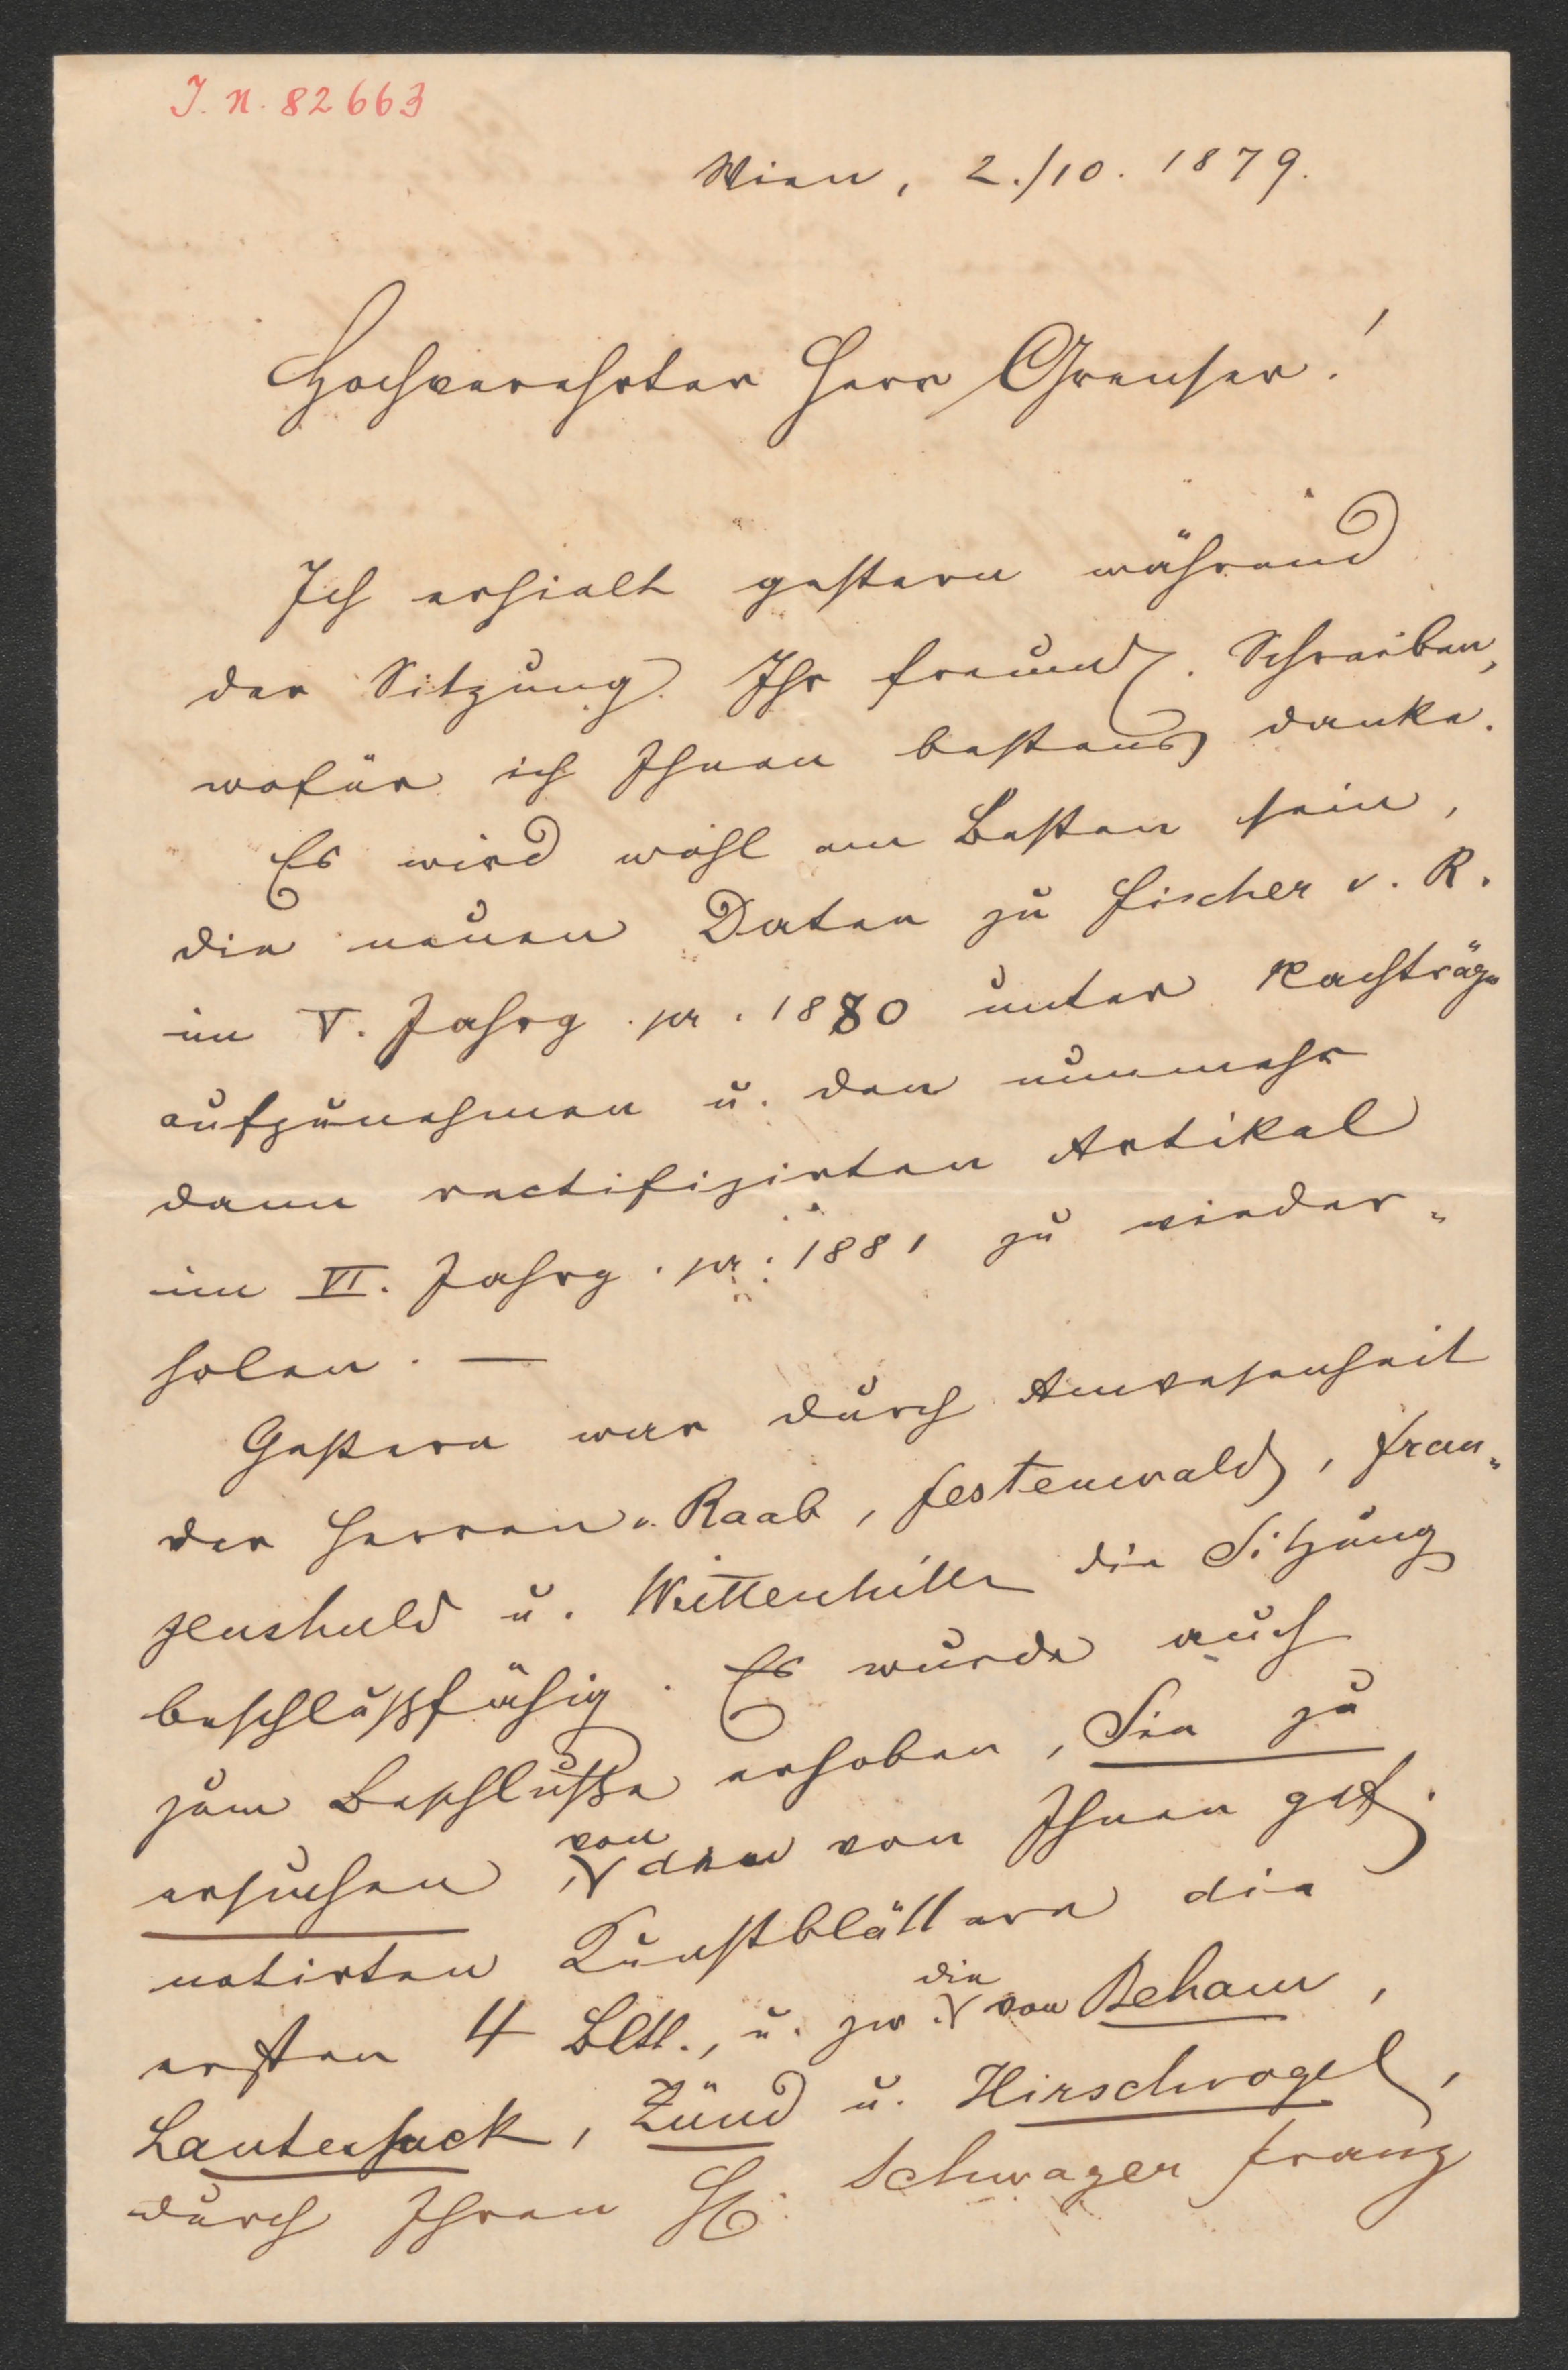 I. N. 82663
Wien, 2./10. 1879.
Hochverehrter Herr Grenser!
Ich erhielt gestern während
der Sitzung Ihr freundl. Schreiben,
wofür ich Ihnen bestens danke.
Es wird wohl am Besten sein,
die neuen Daten zu Fischer v. R.
im V. Jahrg. pr. 1880 unter Nachträge
aufzunehmen u. den nunmehr
dann rectifizirten Artikel
im VI. Jahrg. pr. 1881 zu wieder-
holen. —
Gestern war durch Anwesenheit
der Herren v. Raab, Festenwald, Fran-
zenshuld u. Wittenhiller die Sitzung
beschlußfähig. Es wurde auch
zum Beschluße erhoben, Sie zu
ersuchen, von den von Ihnen gef.
notirten Kunstblättern die
ersten 4 Bltt., u. zw. die von Beham,
Lautensack, Zünd u. Hirschvogel,
durch Ihren H. Schwager Franz